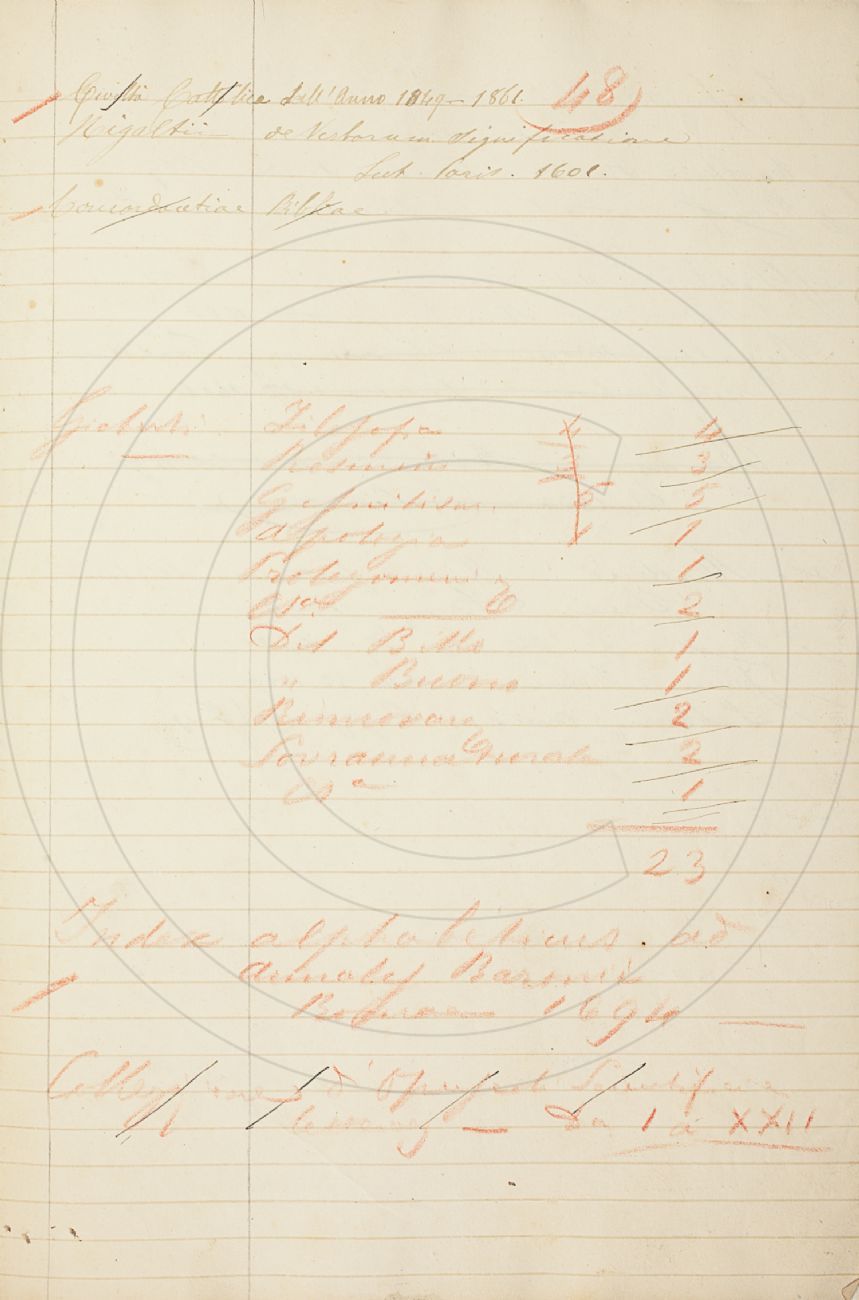 Civiltà Cattolica dell'Anno 1849 - 1861. 48
Rigaltii de Verborum significatione
Lut. Paris. 1601.
Concordantiae Bibliae
Gioberti Filosofia 4 4
Rosmini 3
Gesuitismo 5 5
Apologia 1 1
Prolegomeni 1
2
Del Bello 1
" Buono 1
Rinnovam 2
2
1
23
Index alphabeticus ad
Annales Baronii
1694
Collezione d'Opuscoli Scientifici
Da 1 a XXII